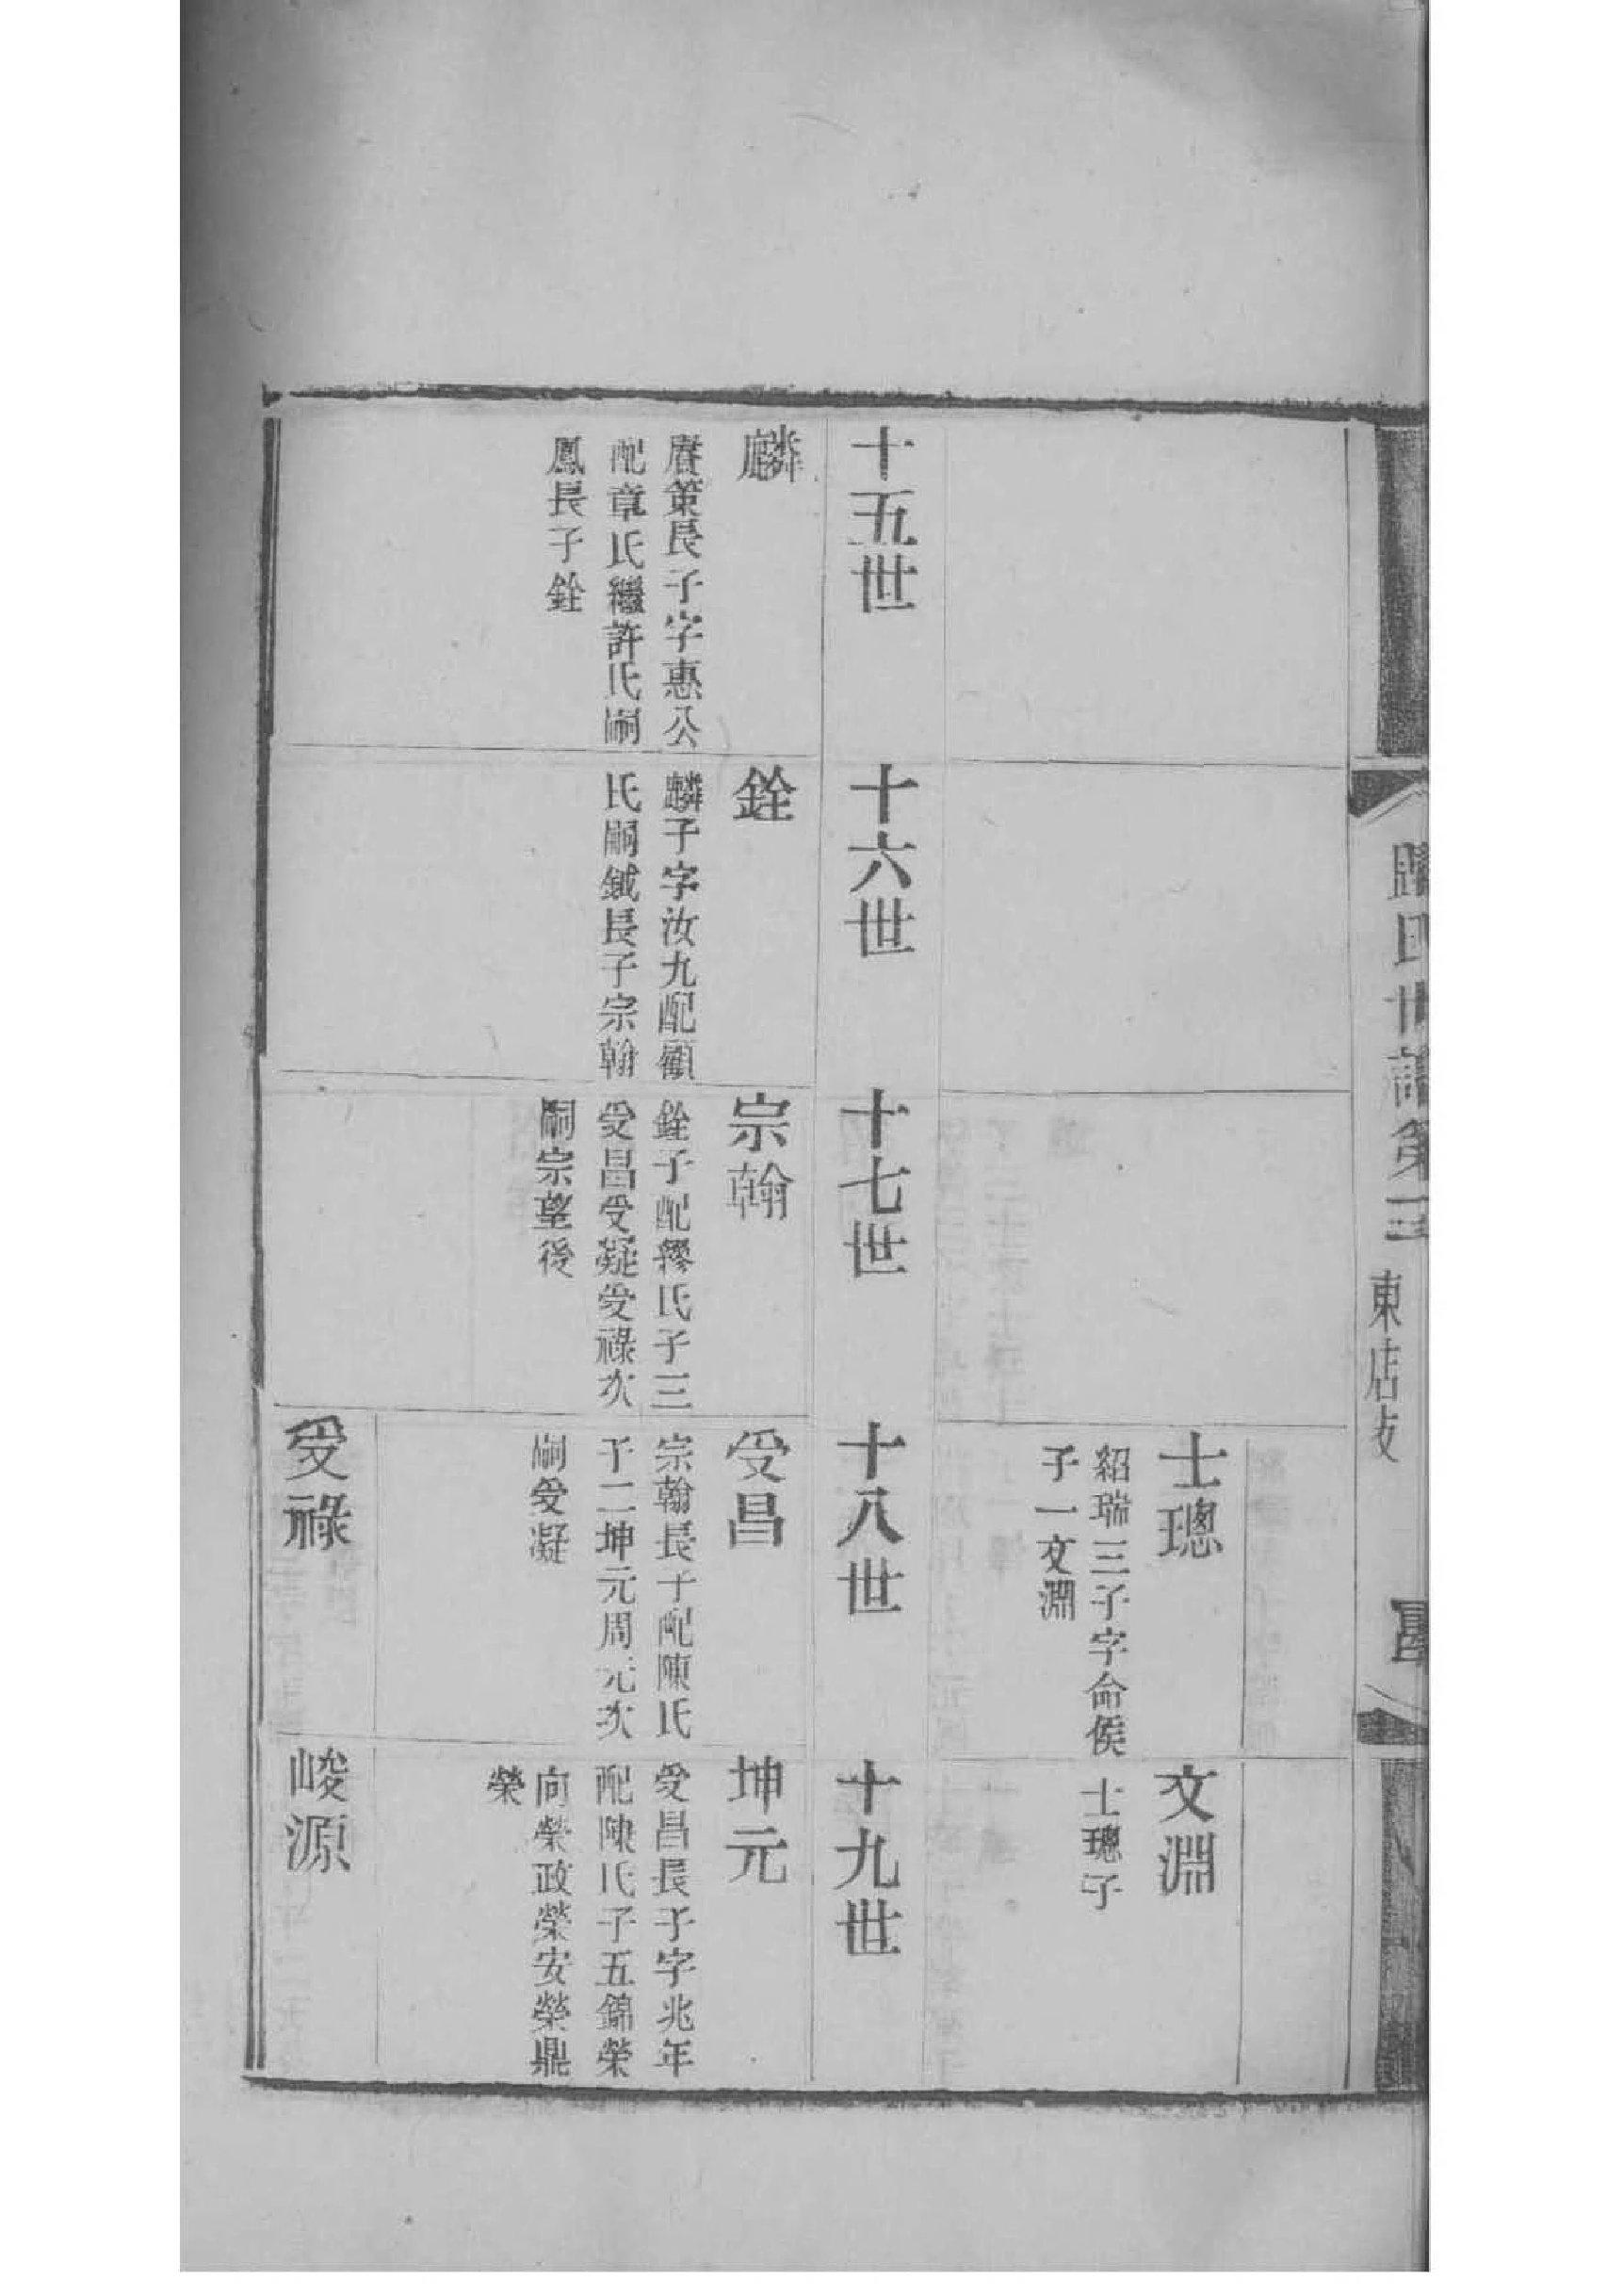 士璁
紹瑞三子字命侯
子一文淵
文淵
士璁子
十五世
十六世
十七世
十八世
十九世
麟
賡策長子字惠公
配章氏繼許氏嗣
鳳長子銓
銓
麟子字汝九配顧
氏嗣鉞長子宗翰
宗翰
銓子配繆氏子三
受昌受凝受祿次
嗣宗望後
受昌
宗翰長子配陳氏
子二坤元周元次
嗣受凝
坤元
受昌長子字兆年
配陳氏子五錦榮
向榮政榮安榮鼎
榮
受祿
峻源
氏世譜第三
東店支